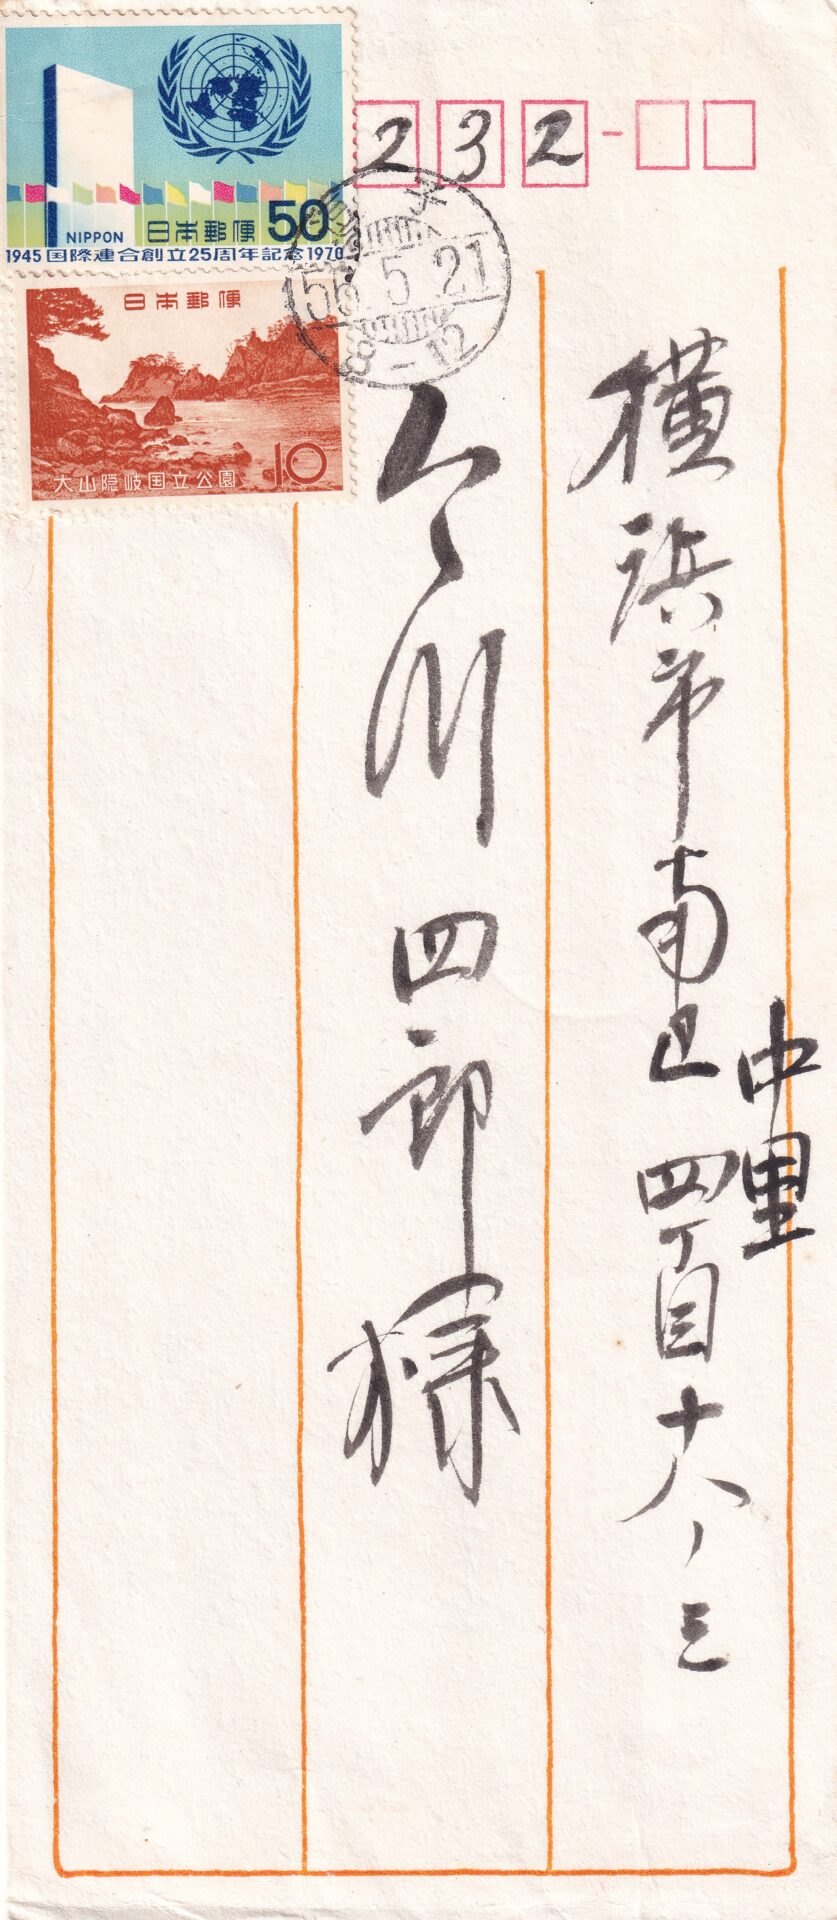 日本郵便 50
NIPPON
1945 国際連合創立25周年記念 1970
日本郵便
大山隠岐国立公園 10
232
56.5.21
8-12
横浜市南区中里四丁目十八ノ三
今川四郎様